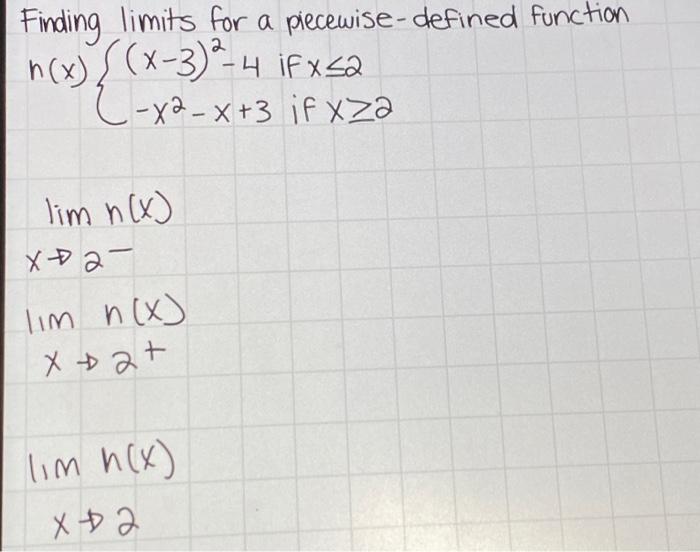 Finding limits for a piecewise-defined function
n(x) { (x-3)²-4 if x≤2
-x²-x+3 if x≥2
lim n(x)
x→2⁻
lim n(x)
x→2⁺
lim n(x)
x→2